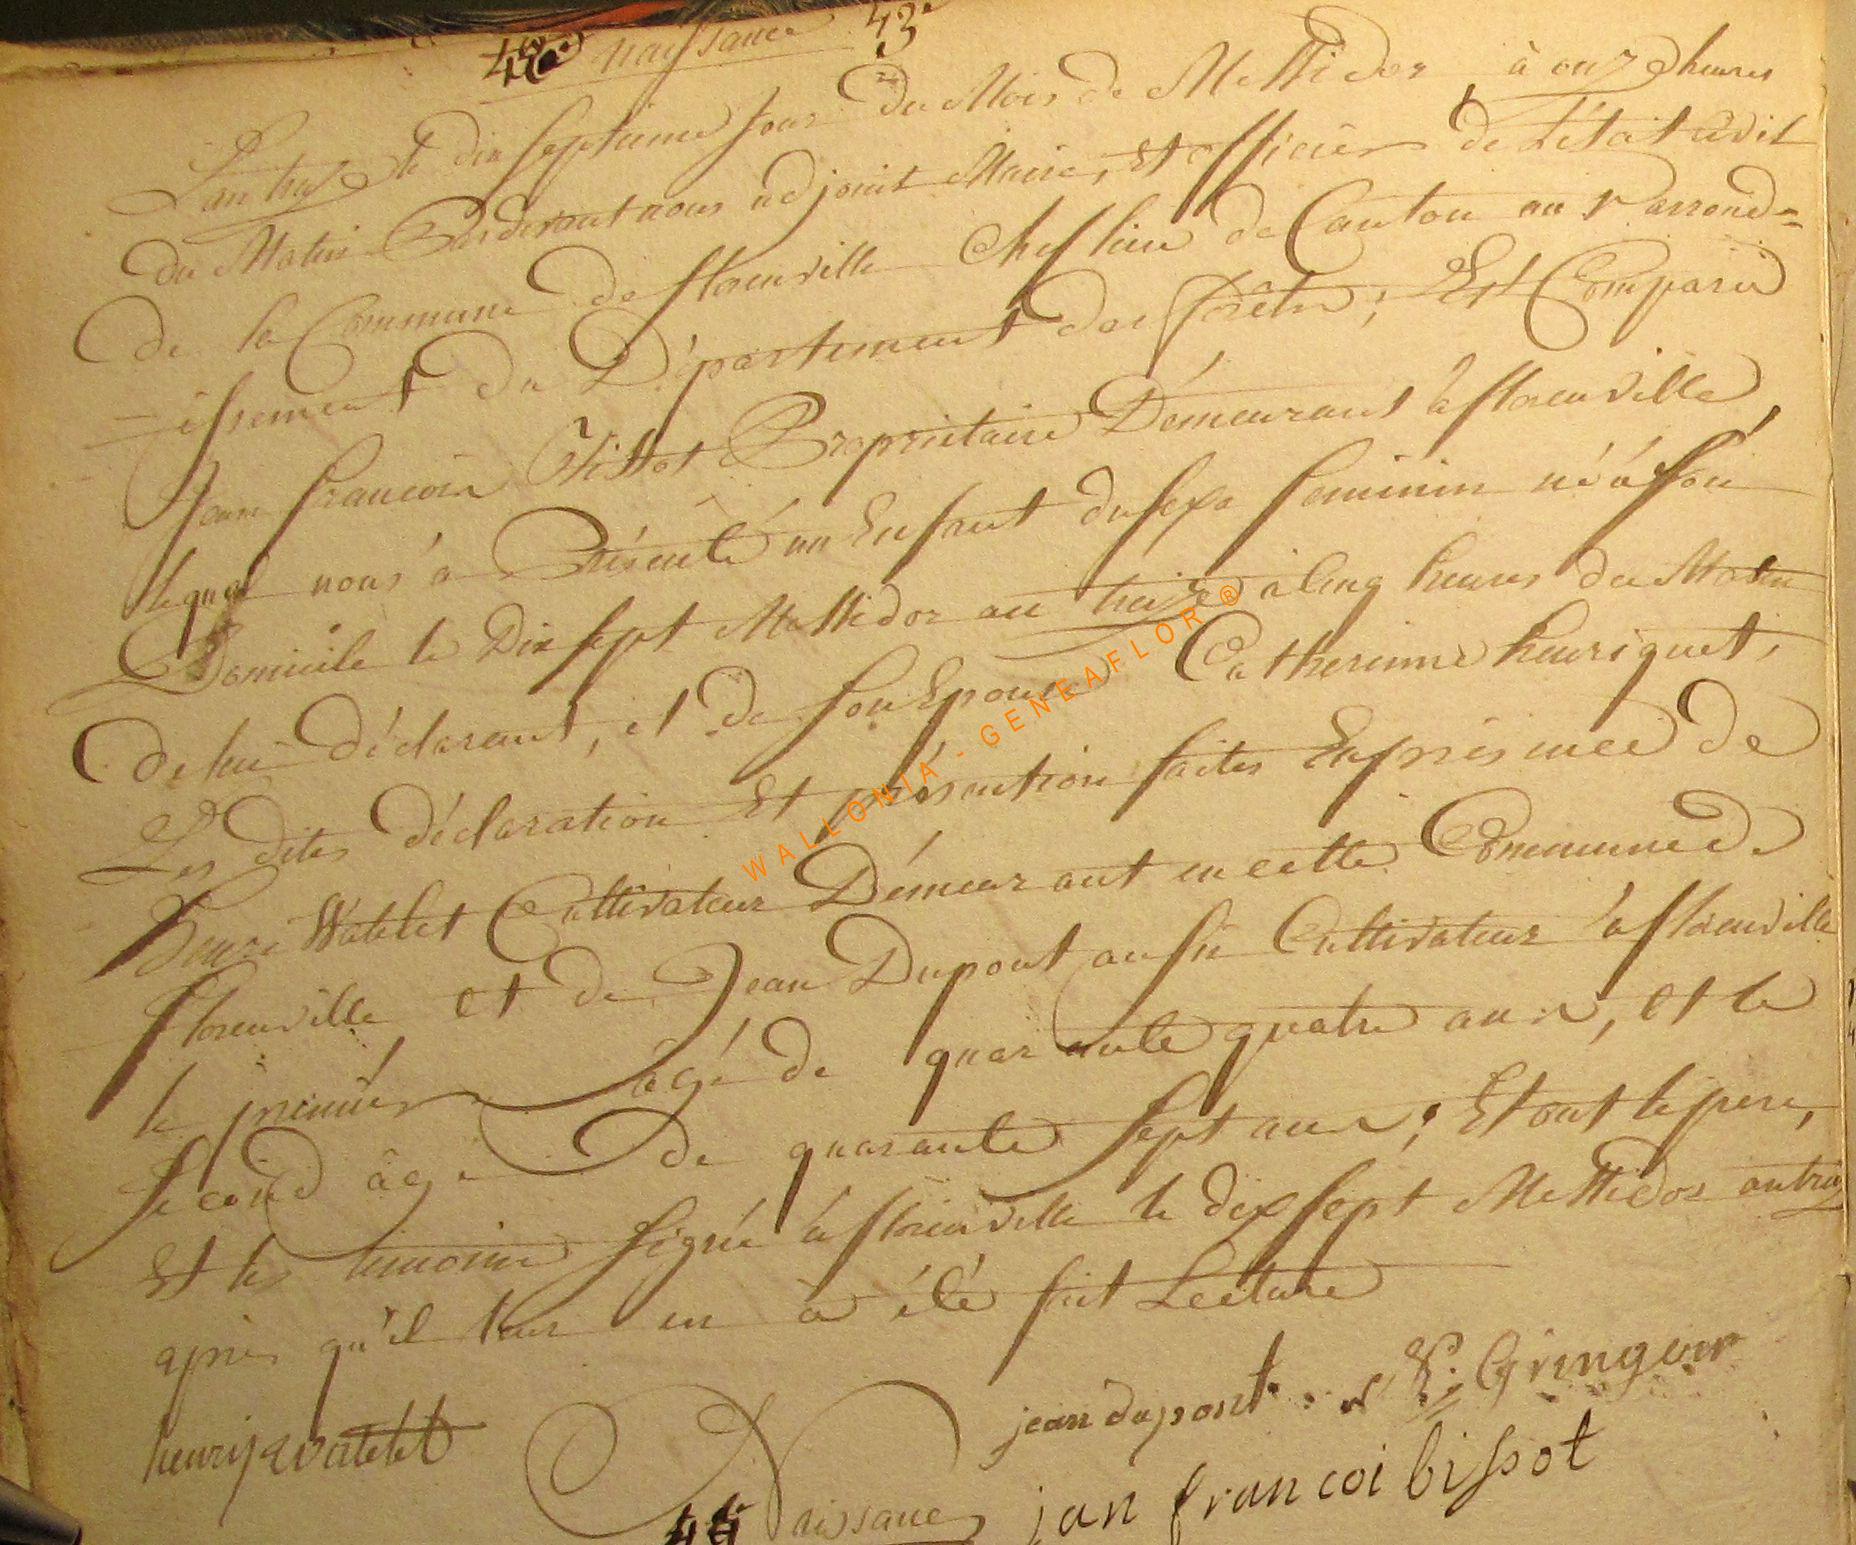 naissance 43.e
L'an treize le dix septieme jour du Mois de Messidor, à onze heures
du Matin Pardevant nous adjoint Maire, et officier de L'état civil
de la Commune de florenville chef lieu de Canton au arrond=
=issement du Département des forêts; Est Comparu
Jean francois Bissot Proprietaire Démeurant à florenville,
lequel nous à Présenté un Enfant du sexe feminin né à son
Domicile le Dix sept Messidor an treize à Cinq heures du Matin
De lui déclarant, et De son Epouse Catherinne henriquet,
Les dites déclaration Et présention faites En présence De
henri Watelet Cultivateur Démeurant en cette Commune De
florenville et de Jean Dupont aussi Cultivateur à florenville
le premier âgé de quarante quatre ans, et le
second âgé de quarante sept ans; Et ont le pere,
Et les temoins signé à florenville le dix sept Messidor an treize
après qu'il leur en à été fait Lecture
jean dupont Gringoir
henrij watelet
jan francoi bissot
44 Naissance
WALLONIA - GENEAFLOR ®